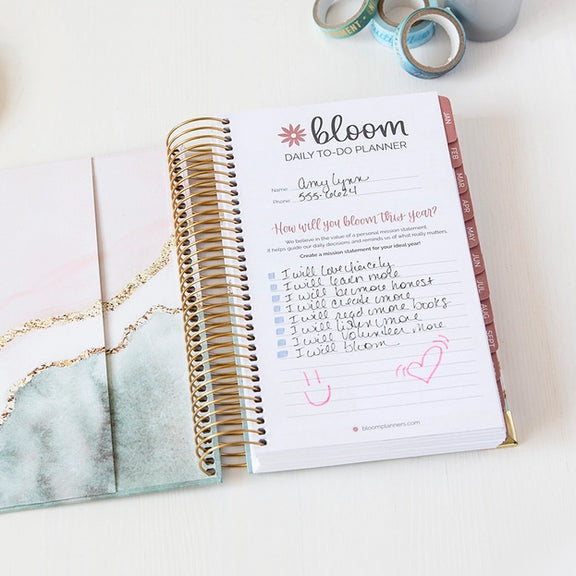 bloom
DAILY TO-DO PLANNER
Name Amy Lynn
Phone 555-6624
How will you bloom this year?
We believe in the value of a personal mission statement.
It helps guide our daily decisions and reminds us of what really matters.
Create a mission statement for your ideal year!
I will love fiercely
I will learn more
I will be more honest
I will create more
I will read more books
I will listen more
I will volunteer more
I will bloom
bloomplanners.com
JAN
FEB
MAR
APR
MAY
JUN
JUL
AUG
SEPT